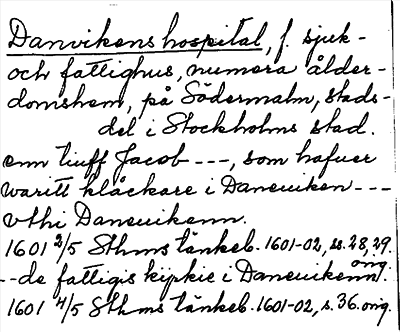 Danvikens hospital, f. sjuk-
och fattighus, numera ålder-
domshem, på Södermalm, stads-
del i Stockholms stad.
enn tiuff Jacob ---, som hafuer
waritt klåckare i Daneuiken ---
vthi Daneuikenn.
1601 2/5 Sthms tänkeb. 1601-02, ss. 28, 29.
orig.
--de fattigis kipkie i Daneuikenn.
1601 4/5 Sthms tänkeb. 1601-02, s. 36. orig.